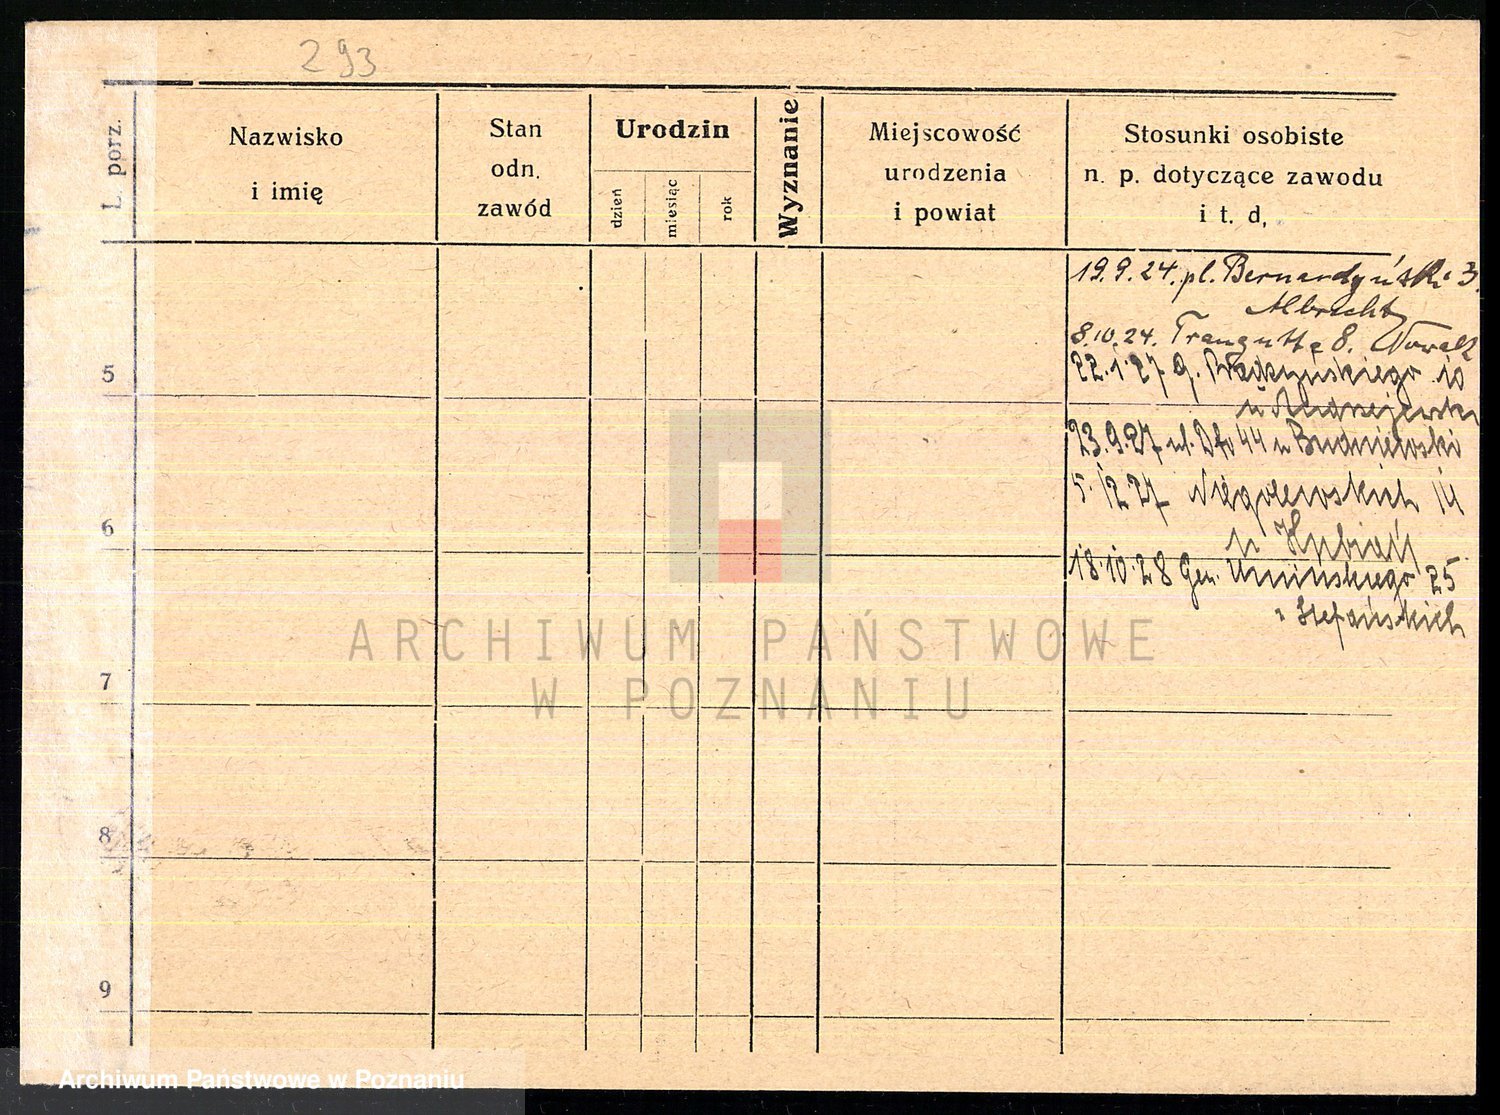 293
L. porz.
Nazwisko
i imię
Stan
odn.
zawód
Urodzin
dzień
miesiąc
rok
Wyznanie
Miejscowość
urodzenia
i powiat
Stosunki osobiste
n. p. dotyczące zawodu
i t. d,
19.9.24. pl. Bernardyński 3.
Albrecht
8.10.24. Traugutta 8. Nowak
5
22.1.27 g. 10
u Andrzejewski
23.9.27 ul. 44 u
5.12.27 Niegolewskich 14
6
u
18.10.28 Gen. Umińskiego 25
Stefańskich
ARCHIWUM PAŃSTWOWE
W POZNANIU
7
8
9
Archiwum Państwowe w Poznaniu